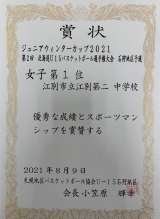 賞状
ジュニアウィンターカップ2021
第2回 北海道U15バスケットボール選手権大会 石狩地区予選
女子第1位
江別市立江別第二中学校
優秀な成績とスポーツマン
シップを賞賛する
2021年8月9日
札幌地区バスケットボール協会U-15石狩地区
会長 小笠原